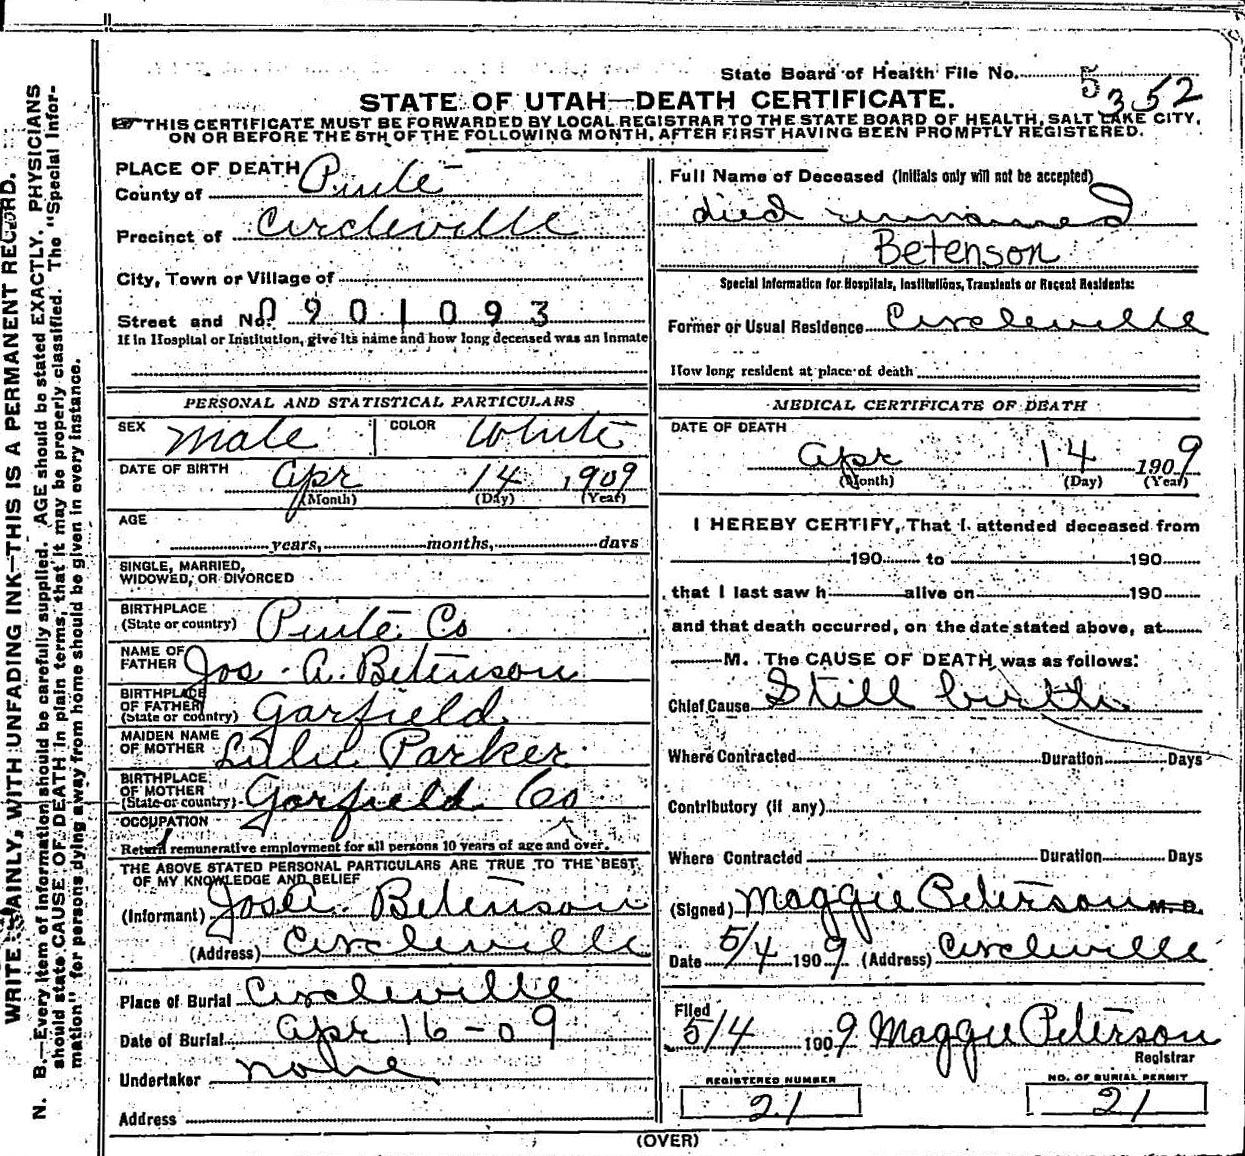 State Board of Health File No. 5352
STATE OF UTAH—DEATH CERTIFICATE.
THIS CERTIFICATE MUST BE FORWARDED BY LOCAL REGISTRAR TO THE STATE BOARD OF HEALTH, SALT LAKE CITY,
ON OR BEFORE THE 5TH OF THE FOLLOWING MONTH, AFTER FIRST HAVING BEEN PROMPTLY REGISTERED.
PLACE OF DEATH
County of Piute
Precinct of Circleville
City, Town or Village of
Street and No. 0901093
If in Hospital or Institution, give its name and how long deceased was an inmate
Full Name of Deceased (Initials only will not be accepted)
died unnamed
Betenson
Special Information for Hospitals, Institutions, Transients or Recent Residents:
Former or Usual Residence Circleville
How long resident at place of death
PERSONAL AND STATISTICAL PARTICULARS
SEX Male COLOR White
DATE OF BIRTH Apr 14 1909
(Month) (Day) (Year)
AGE
years, months, days
SINGLE, MARRIED,
WIDOWED, OR DIVORCED
BIRTHPLACE
(State or country) Piute Co
NAME OF
FATHER Jos. A. Betenson
BIRTHPLACE
OF FATHER
(State or country) Garfield
MAIDEN NAME
OF MOTHER Lillie Parker
BIRTHPLACE
OF MOTHER
(State or country) Garfield Co
OCCUPATION
Return remunerative employment for all persons 10 years of age and over.
THE ABOVE STATED PERSONAL PARTICULARS ARE TRUE TO THE BEST
OF MY KNOWLEDGE AND BELIEF
(Informant) Jos A. Betenson
(Address) Circleville
Place of Burial Circleville
Date of Burial Apr 16-09
Undertaker none
Address
MEDICAL CERTIFICATE OF DEATH
DATE OF DEATH
Apr 14 1909
(Month) (Day) (Year)
I HEREBY CERTIFY, That I attended deceased from
190 to 190
that I last saw h alive on 190
and that death occurred, on the date stated above, at
M. The CAUSE OF DEATH was as follows:
Chief Cause Still birth
Where Contracted Duration Days
Contributory (if any)
Where Contracted Duration Days
(Signed) Maggie Peterson M. D.
Date 5/4 1909 (Address) Circleville
Filed
5/4 1909 Maggie Peterson
Registrar
REGISTERED NUMBER
21
NO. OF BURIAL PERMIT
21
(OVER)
WRITE PLAINLY, WITH UNFADING INK—THIS IS A PERMANENT RECORD.
N. B.—Every item of information should be carefully supplied. AGE should be stated EXACTLY. PHYSICIANS
should state CAUSE OF DEATH in plain terms, that it may be properly classified. The "Special Infor-
mation" for persons dying away from home should be given in every instance.